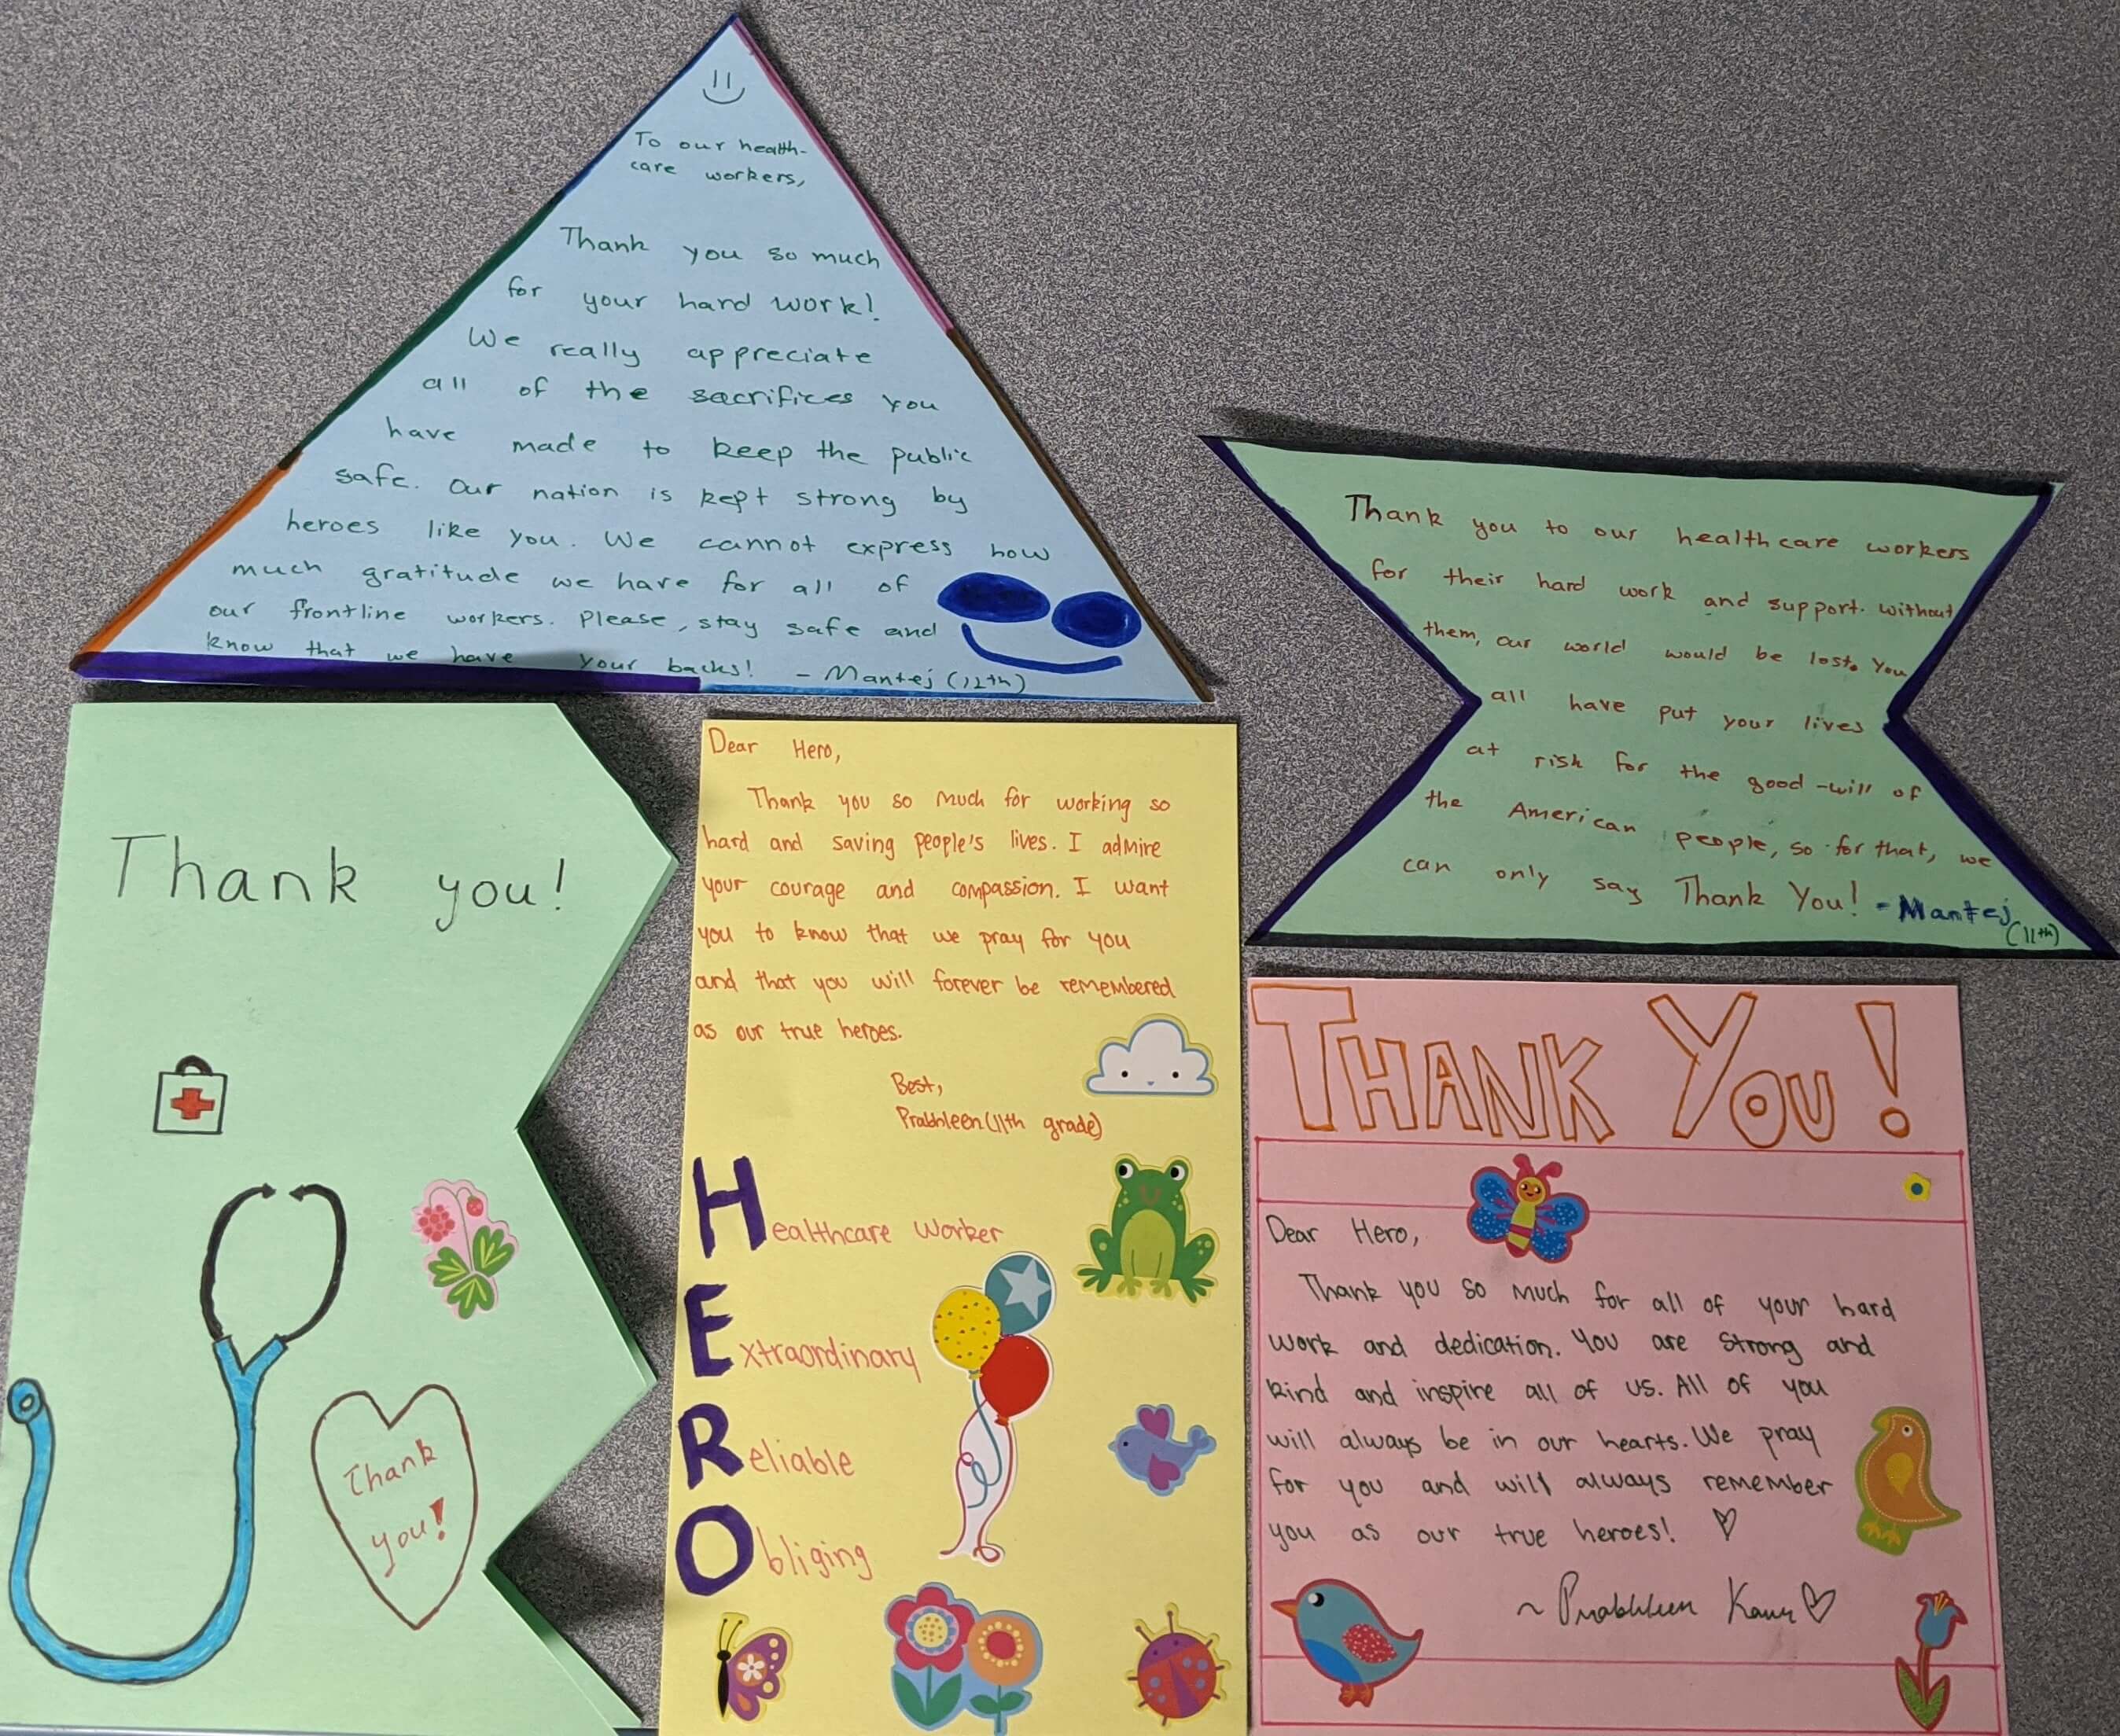 To our health-
care workers,
Thank you so much
for your hard work!
We really appreciate
all of the sacrifices you
have made to keep the public
safe. Our nation is kept strong by
heroes like you. We cannot express how
much gratitude we have for all of
our frontline workers. Please, stay safe and
know that we have your backs! - Mantej (12th)
Thank you to our healthcare workers
for their hard work and support. without
them, our world would be lost. You
all have put your lives
at risk for the good-will of
the American people, so for that, we
can only say Thank You! - Mantej
(11th)
Thank you!
Thank
you!
Dear Hero,
Thank you so much for working so
hard and saving people's lives. I admire
your courage and compassion. I want
you to know that we pray for you
and that you will forever be remembered
as our true heroes.
Best,
Prabhleen (11th grade)
Healthcare Worker
Extraordinary
Reliable
Obliging
THANK YOU!
Dear Hero,
Thank you so much for all of your hard
work and dedication. You are strong and
kind and inspire all of us. All of you
will always be in our hearts. We pray
for you and will always remember
you as our true heroes! ♡
~ Prabhleen Kaur ♡